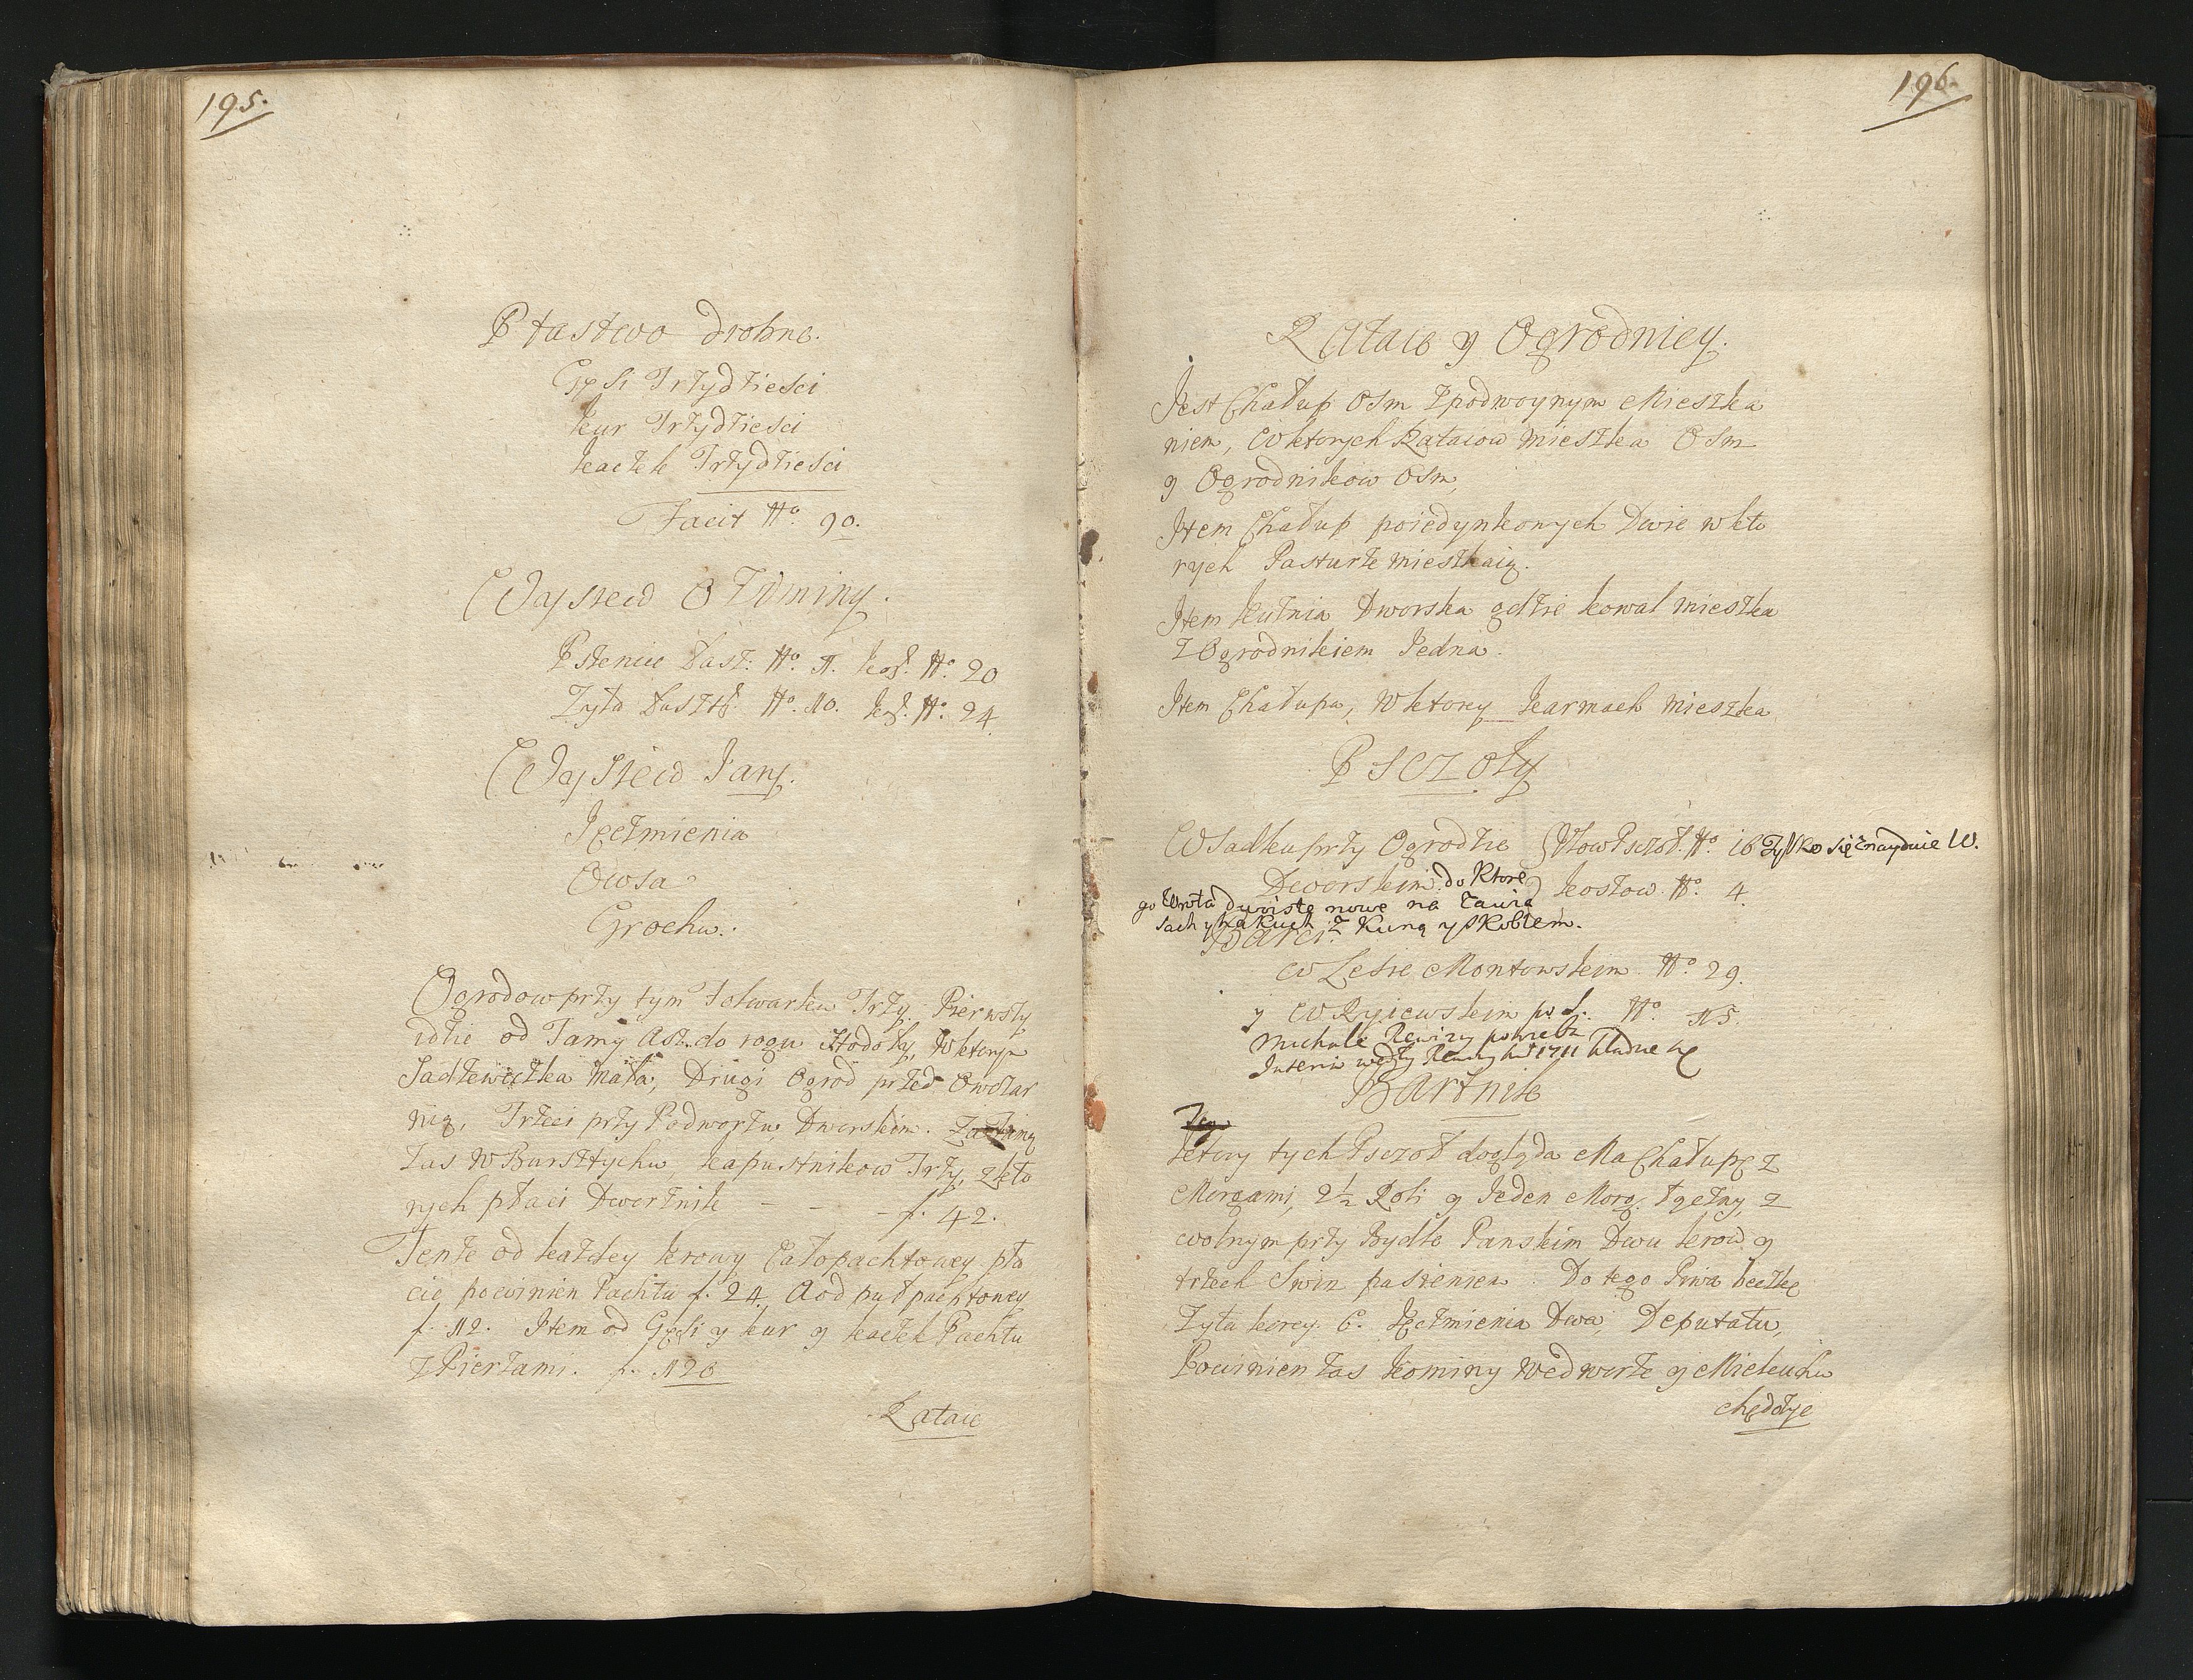 195.
Ptastwo drobne.
Gęsi Trżydżiesci
Kur Trżydżiesci
Kaczek Trżydżiesci
Facit No. 90.
Wysiew Oziminy.
Pszenice Łaszt: No. 1. Kor. No. 20
Zyta Łasztt. No. 10. Kor. No. 24
Wysiew Jarz.
Jęczmienia
Owsa
Grochu.
Ogrodow przy tym Folwarku Trży. Pierwszy
idzie od Tamy asz do rogu Stodoły, w ktorym
Sadzewiczka mała, Drugi Ogrod przed Owczar
nią, Trzeci przy Podworzu, Dworskim.
zas w Bursztychu, kapustnikow Trzy, z kto
rych płaci Dworznik - - - f. 42.
Tenże od każdey krowy całopachtowey pła
cic powinien Pachtu f. 24. A od puł pachtowey
f. 12. Item od Gęsi y kur y kaczek Pachtu
z Pierzami. f. 126
Rataie
196.
Rataie y Ogrodnicy.
Jest Chałup Osm z podwoynym Mieszka
niem, w ktorych Rataiow mieszka Osm
y Ogrodnikow Osm,
Item Chałup poiedynkowych Dwie w kto
rych Pasturze mieszkaią.
Item Kuznia Dworska gdzie kowal mieszka
z Ogrodnikiem Jedna.
Item Chałupa, w ktorey Karmach mieszka
Psczoły
W Sadku przy Ogrodzie Vlow Psczoł. No. 16 Tylko się znayduie 10.
Dworskim. do Ktore Koszow No. 4.
go Wrota dwoiste nowe na zawia
sach y hakuch z Kuną y skoblem.
Barci.
w Lesie Montowskim No. 29.
y w Ryiewskim No. 15.
Rewizy
1711
Bartnik
Ten
Ktory tych Psczoł dogląda Ma Chałupę z
Morgami, 2½ Roli y Jeden Morg Łęczny, z
wolnym przy Bydle Panskim Dwu krow y
trzech Swin pasieniem. Do tego Piwa beczkę
Zyta korcy 6. Jęczmienia Dwa, Deputatu,
Powinien zas kominy we dworze y Mielcuchu
chędoże